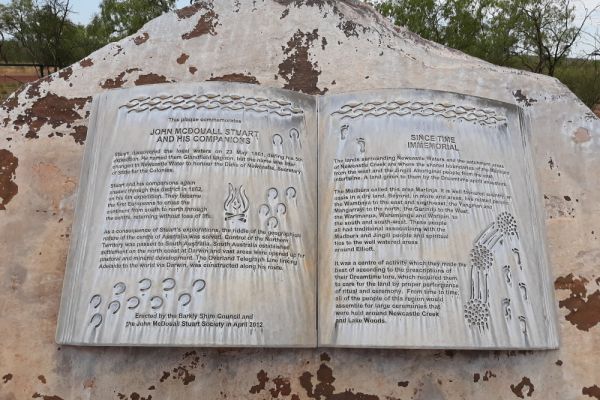 This plaque commemorates
JOHN MCDOUALL STUART
AND HIS COMPANIONS
Stuart discovered the local waters on 23 May 1861, during his 5th
expedition. He named them Glandfield Lagoon, but the name was later
changed to Newcastle Water to honour the Duke of Newcastle, Secretary
of State for the Colonies.
Stuart and his companions again
passed through this district in 1862,
on his 6th expedition. They became
the first Europeans to cross the
continent from south to north through
the centre, returning without loss of life.
As a consequence of Stuart's explorations, the riddle of the geographical
nature of the centre of Australia was solved. Control of the Northern
Territory was passed to South Australia. South Australia established
settlement on the north coast at Darwin and vast areas were opened up for
pastoral and mineral development. The Overland Telegraph Line linking
Adelaide to the world via Darwin, was constructed along his route.
Erected by the Barkly Shire Council and
the John McDouall Stuart Society in April 2012
SINCE TIME
IMMEMORIAL
The lands surrounding Newcastle Waters and the settlement areas
of Newcastle Creek are where the shared boundaries of the Mudbura
from the west and the Jingili Aboriginal people from the east
intertwine. A land given to them by the Dreamtime spirit ancestors.
The Mudbura called this area Marlinja. It is well
oasis in a dry land. Beyond, in
the Wambaya to the east and
Wangarrayi to the north, the Gurindji to the West,
the Warlmanpa, Warramungu and Warlpiri to
the south and south-west. These people
all had traditional associations with the
Mudbura and Jingili people and spiritual
ties to the well watered areas
around Elliott.
It was a centre of activity which they made the
best of according to the prescriptions of
their Dreamtime lore, which required them
to care for the land by proper performance
of ritual and ceremony. From time to time,
all of the people of this region would
assemble for large ceremonies that
were held around Newcastle Creek
and Lake Woods.